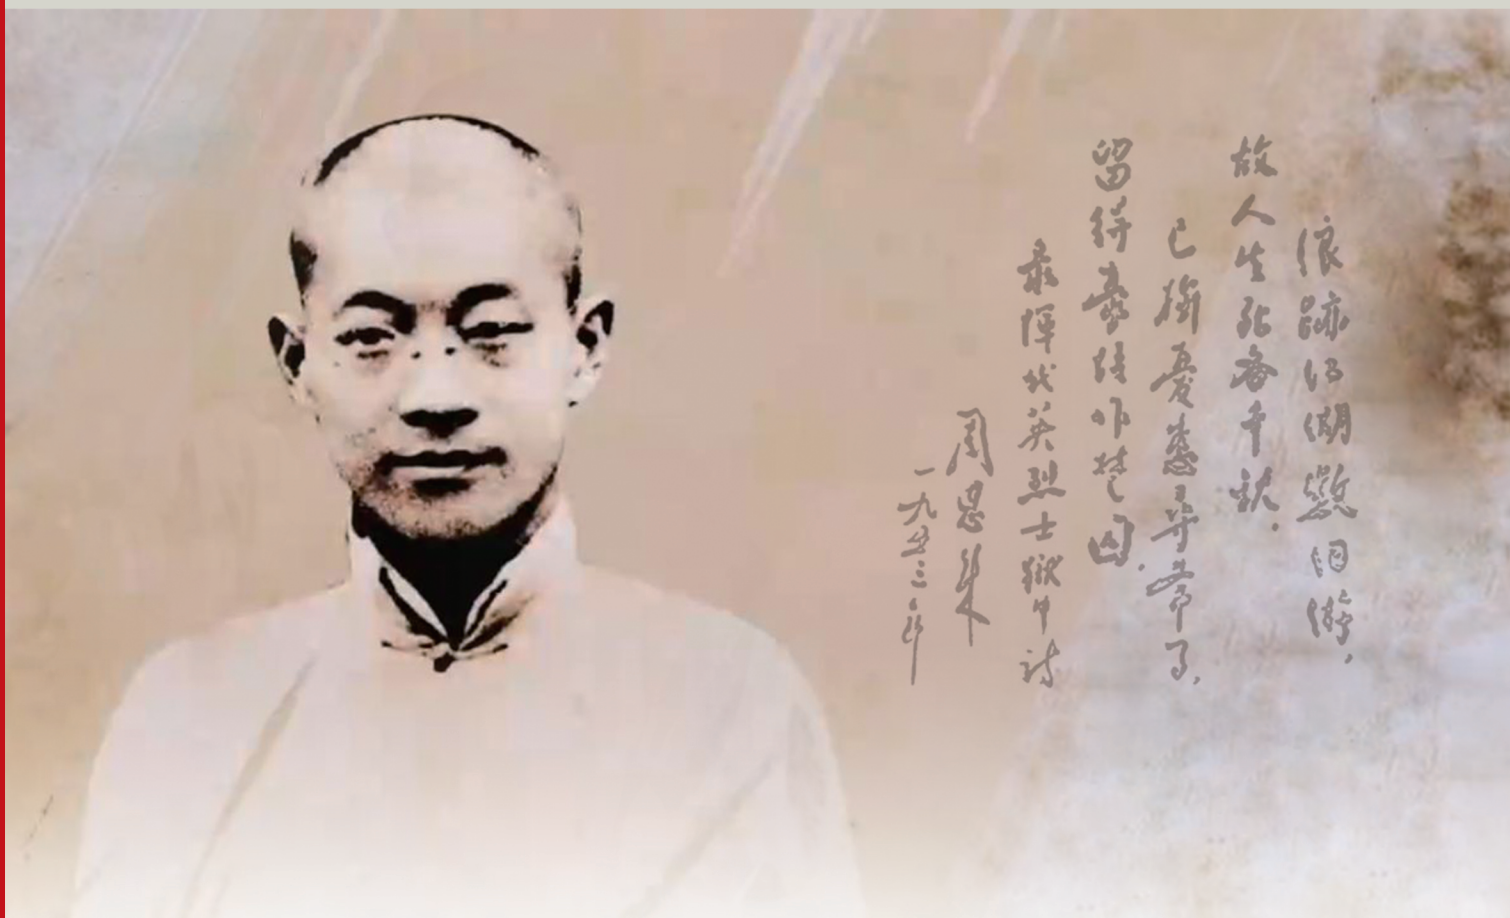 浪跡江湖憶旧遊，
故人生死各千秋。
已擯憂患尋常事，
留得豪情作楚囚。
录惲代英烈士獄中詩
周恩来
一九五三年